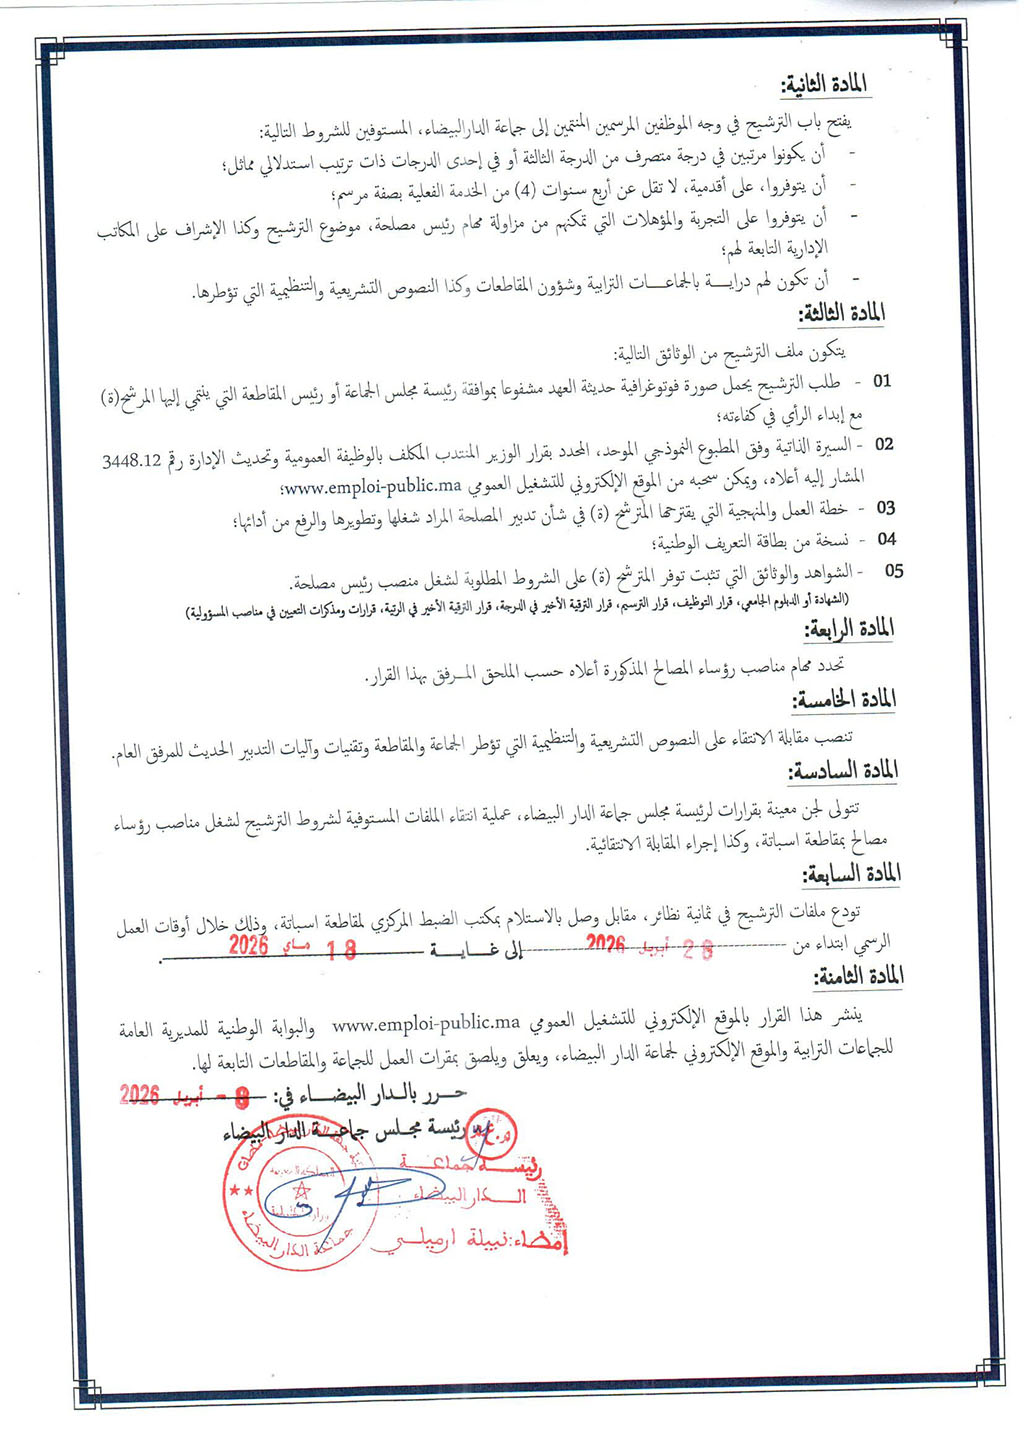 المادة الثانية:
يفتح باب الترشيح في وجه الموظفين المرسمين المنتمين إلى جماعة الدارالبيضاء، المستوفين للشروط التالية:
- أن يكونوا مرتبين في درجة متصرف من الدرجة الثالثة أو في إحدى الدرجات ذات ترتيب استدلالي مماثل؛
- أن يتوفروا، على أقدمية، لا تقل عن أربع سنوات (4) من الخدمة الفعلية بصفة مرسم؛
- أن يتوفروا على التجربة والمؤهلات التي تمكنهم من مزاولة مهام رئيس مصلحة، موضوع الترشيح وكذا الإشراف على المكاتب
الإدارية التابعة لهم؛
- أن تكون لهم درايــة بالجماعــات الترابية وشؤون المقاطعات وكذا النصوص التشريعية والتنظيمية التي تؤطرها.
المادة الثالثة:
يتكون ملف الترشيح من الوثائق التالية:
01 - طلب الترشيح يحمل صورة فوتوغرافية حديثة العهد مشفوعا بموافقة رئيسة مجلس الجماعة أو رئيس المقاطعة التي ينتمي إليها المرشح(ة)
مع إبداء الرأي في كفاءته؛
02 - السيرة الذاتية وفق المطبوع النموذجي الموحد، المحدد بقرار الوزير المنتدب المكلف بالوظيفة العمومية وتحديث الإدارة رقم 3448.12
المشار إليه أعلاه، ويمكن سحبه من الموقع الإلكتروني للتشغيل العمومي www.emploi-public.ma؛
03 - خطة العمل والمنهجية التي يقترحها المترشح (ة) في شأن تدبير المصلحة المراد شغلها وتطويرها والرفع من أدائها؛
04 - نسخة من بطاقة التعريف الوطنية؛
05 - الشواهد والوثائق التي تثبت توفر المترشح (ة) على الشروط المطلوبة لشغل منصب رئيس مصلحة.
(الشهادة أو الدبلوم الجامعي، قرار التوظيف، قرار الترسيم، قرار الترقية الأخير في الدرجة، قرار الترقية الأخير في الرتبة، قرارات ومذكرات التعيين في مناصب المسؤولية)
المادة الرابعة:
تحدد مهام مناصب رؤساء المصالح المذكورة أعلاه حسب الملحق المـرفق بهذا القرار.
المادة الخامسة:
تنصب مقابلة الانتقاء على النصوص التشريعية والتنظيمية التي تؤطر الجماعة والمقاطعة وتقنيات وآليات التدبير الحديث للمرفق العام.
المادة السادسة:
تتولى لجن معينة بقرارات لرئيسة مجلس جماعة الدار البيضاء، عملية انتقاء الملفات المستوفية لشروط الترشيح لشغل مناصب رؤساء
مصالح بمقاطعة اسباتة، وكذا إجراء المقابلة الانتقائية.
المادة السابعة:
تودع ملفات الترشيح في ثمانية نظائر، مقابل وصل بالاستلام بمكتب الضبط المركزي لمقاطعة اسباتة، وذلك خلال أوقات العمل
الرسمي ابتداء من 28 أبريل 2026 إلى غـــايـــة 18 ماي 2026.
المادة الثامنة:
ينشر هذا القرار بالموقع الإلكتروني للتشغيل العمومي www.emploi-public.ma والبوابة الوطنية للمديرية العامة
للجماعات الترابية والموقع الإلكتروني لجماعة الدار البيضاء، ويعلق ويلصق بمقرات العمل للجماعة والمقاطعات التابعة لها.
حـــرر بالـدار البيضـــاء في: 8 - أبريل 2026
رئيسة مجـلس جماعـــة الدار البيضاء
رئيسـة جماعـــة
الـــدار البيضاء
إمضاء: نبيلة ارميلـي
جماعة الدار البيضاء